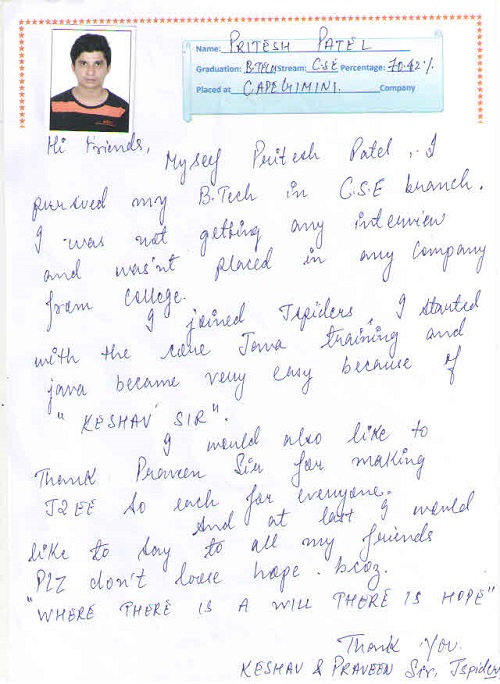 Name: PRITESH PATEL
Graduation: B.TECH Stream: C.S.E Percentage: 70.42%
Placed at CAPEGIMINI. Company
Hi Friends,
Myself Pritesh Patel, I
pursued my B.Tech in C.S.E branch.
I was not getting any interview
and wasn't placed in any company
from college.
I joined Jspiders, I started
with the core Java training and
java became very easy because of
"KESHAV SIR".
I would also like to
Thank Praveen Sir for making
J2EE so each for everyone.
And at last I would
like to say to all my friends
PLZ don't loose hope. bcoz.
"WHERE THERE IS A WILL THERE IS HOPE"
Thank You.
KESHAV & PRAVEEN Sir, Jspiders